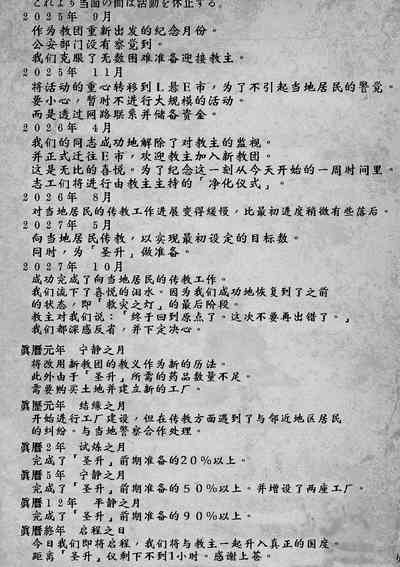 これより当面の間は活動を休止する。
2025年 9月
作为教团重新出发的纪念月份。
公安部门没有察觉到。
我们克服了无数困难准备迎接教主。
2025年 11月
将活动的重心转移到L县E市，为了不引起当地居民的警觉。
要小心，暂时不进行大规模的活动。
而是透过网路联系并储备资金。
2026年 4月
我们的同志成功地解除了对教主的监视。
并正式迁往E市，欢迎教主加入新教团。
这是无比的喜悦。为了纪念这一刻从今天开始的一周时间里。
志工们将进行由教主主持的「净化仪式」。
2026年 8月
对当地居民的传教工作进展变得缓慢，比最初进度稍微有些落后。
2027年 5月
向当地居民传教，以实现最初设定的目标数。
同时，为「圣升」做准备。
2027年 10月
成功完成了向当地居民的传教工作。
我们流下了喜悦的泪水。因为我们成功地恢复到了之前
的状态，即「救灾之灯」的最后阶段。
教主对我们说：「终于回到原点了。这次不要再出错了。」
我们都深感反省，并下定决心。
眞曆元年 宁静之月
将改用新教团的教义作为新的历法。
此外由于「圣升」所需的药品数量不足。
需要购买土地并建立新的工厂。
眞歷元年 结缘之月
开始进行工厂建设，但在传教方面遇到了与邻近地区居民
的纠纷。与当地警察合作处理。
眞曆2年 试炼之月
完成了「圣升」前期准备的20%以上。
眞曆5年 宁静之月
完成了「圣升」前期准备的50%以上。并增设了两座工厂。
眞曆12年 平静之月
完成了「圣升」前期准备的90%以上。
眞曆終年 启程之日
今日我们即将启程，我们将与教主一起升入真正的国度。
距离「圣升」仅剩下不到1小时。感谢上苍。